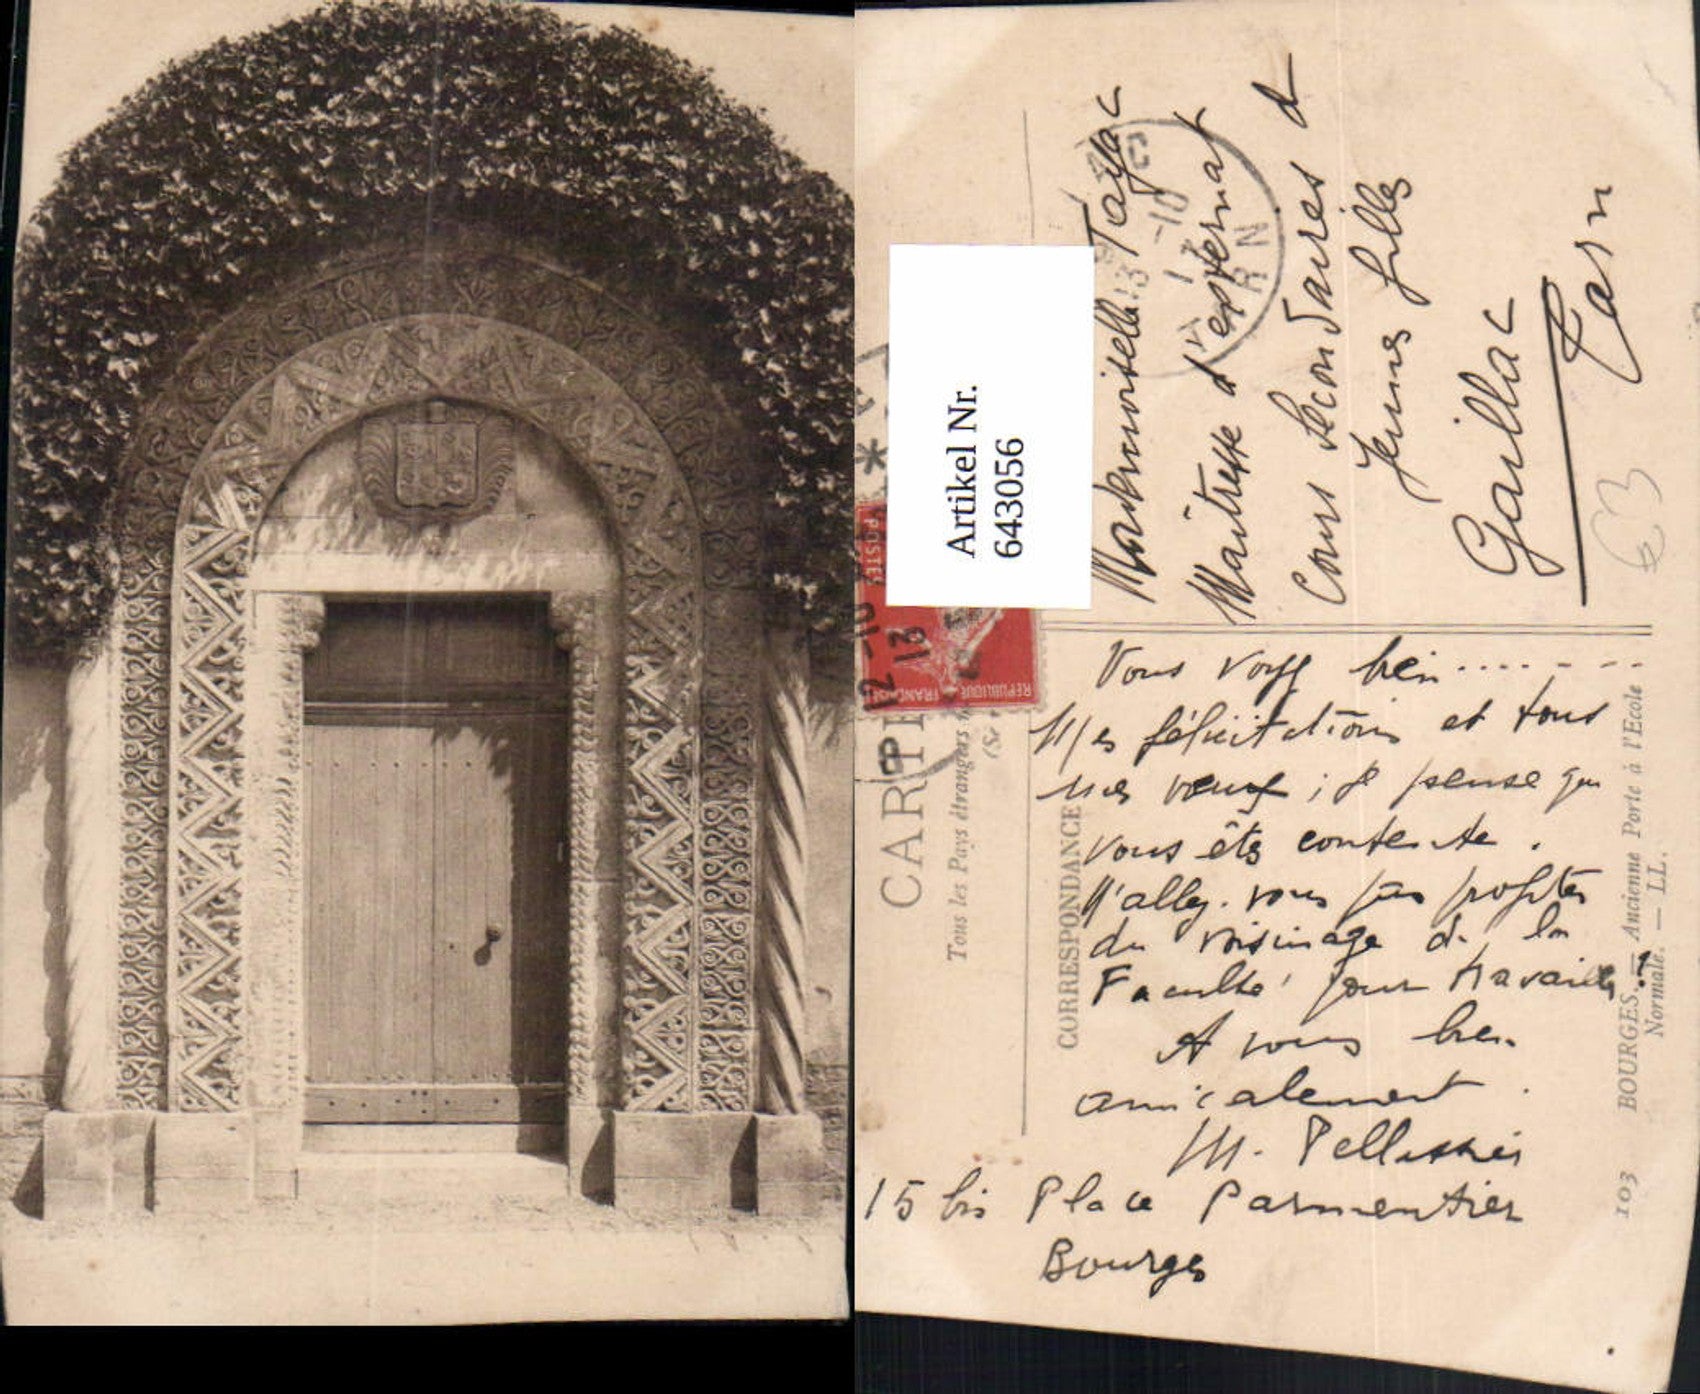 Artikel Nr.
643056
Mademoiselle Tayac
Maîtresse d'internat
Cours Secondaires de
Jeunes filles
Gaillac
Tarn
63
CARTE
Tous les Pays étrangers
CORRESPONDANCE
POSTES
REPUBLIQUE FRANÇAISE
12 -10
13
Vous voyez bien..........
Mes félicitations et tous
mes voeux ; je pense que
vous êtes contente.
N'allez-vous pas profiter
du voisinage de la
Faculté pour travailler ?
A vous bien
amicalement.
M. Pellissier
15 bis Place Parmentier
Bourges
103 BOURGES. — Ancienne Porte à l'Ecole
Normale. — LL.